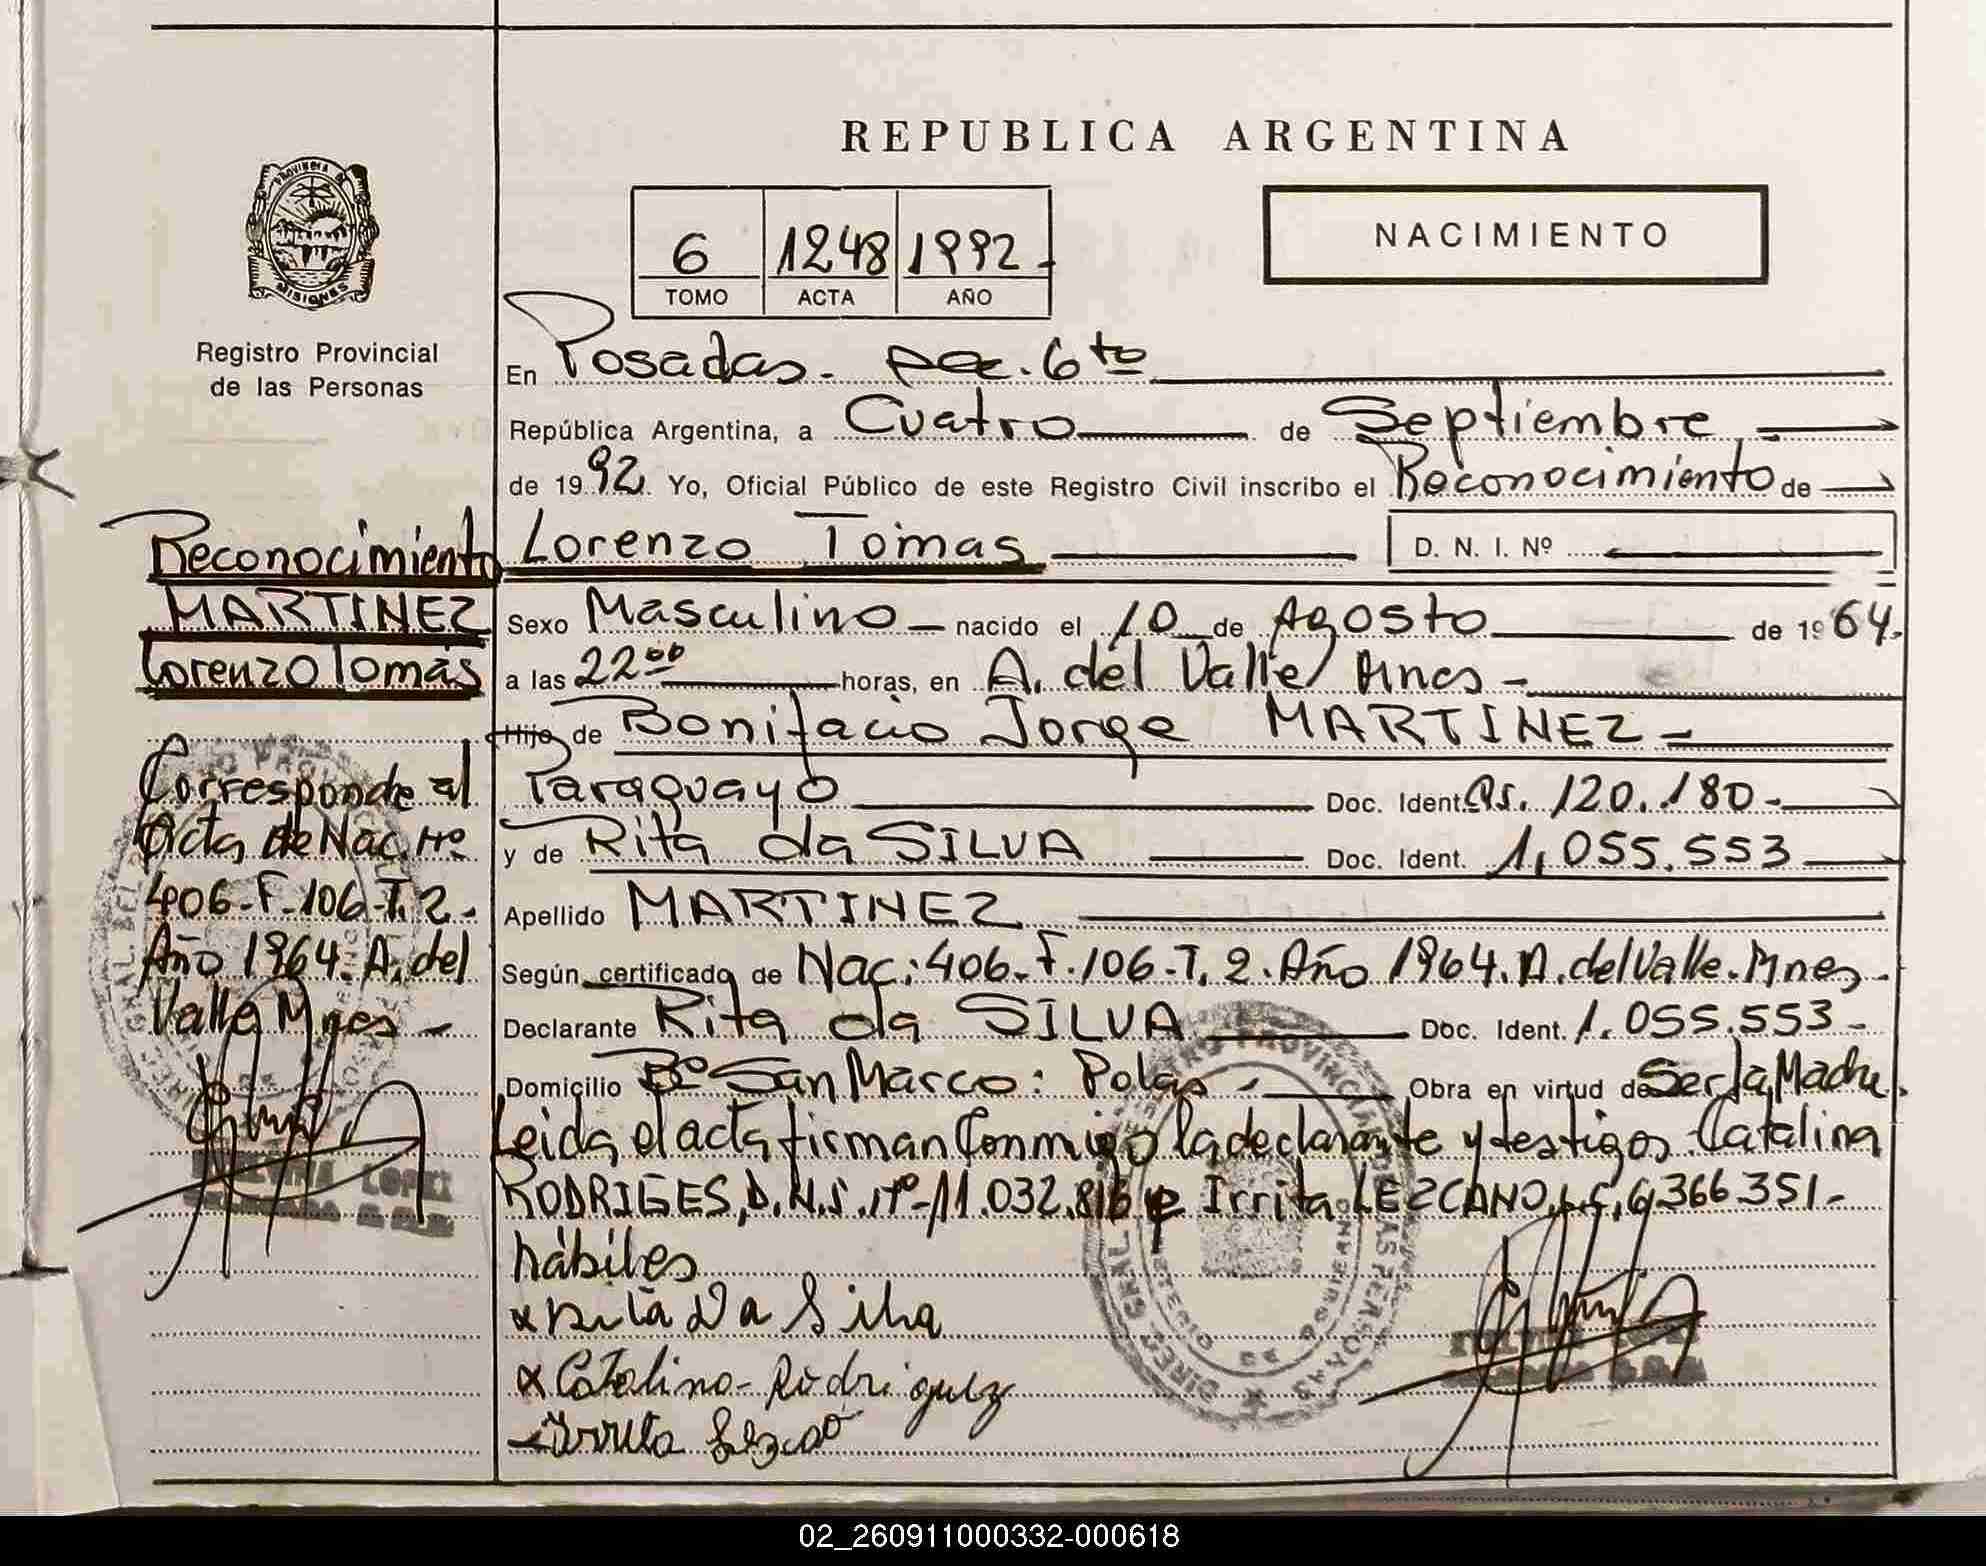 REPUBLICA ARGENTINA
PROVINCIA DE
MISIONES
Registro Provincial
de las Personas
6 1248 1992.-
TOMO ACTA AÑO
NACIMIENTO
En Posadas. Sec. 6to
República Argentina, a Cuatro de Septiembre
de 1992. Yo, Oficial Público de este Registro Civil inscribo el Reconocimiento de
Lorenzo Tomas D. N. I. Nº
Sexo Masculino nacido el 10 de Agosto de 1964.
a las 22 00 horas, en A. del Valle Mnes -
Hijo de Bonifacio Jorge MARTINEZ -
Paraguayo Doc. Ident. 120.180-
y de Rita da SILVA Doc. Ident. 1,055.553
Apellido MARTINEZ
Según certificado de Nac: 406-F.106-T. 2. Año 1964. A. del Valle. Mnes -
Declarante Rita da SILVA Doc. Ident. 1.055.553-
Domicilio Bº San Marco: Pdas - Obra en virtud de Ser la Madre.
Leida el acta firman Conmigo la declarante y testigos Catalina
RODRIGES, D.N.I. Nº-11.032.816 e Irrita LEZCANO, L.C, 6,366.351-
hábiles
x Rita Da Silva
x Catalina-Rodriguez
Reconocimiento
MARTINEZ
Lorenzo Tomás
Corresponde al
Acta de Nac. Nº
406-F-106-T. 2-
Año 1964. A. del
Valle Mnes -
02_260911000332-000618